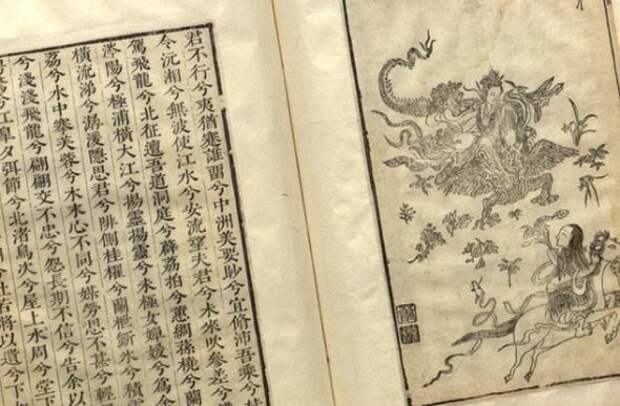 君不行兮夷猶蹇誰留兮中洲美要眇兮宜脩沛吾乘兮桂
令沅湘兮無波使江水兮安流望夫君兮未來吹參差兮
駕飛龍兮北征邅吾道兮洞庭薜荔拍兮蕙綢蓀橈兮蘭
涔陽兮極浦橫大江兮揚靈揚靈兮未極女嬋媛兮為余
橫流涕兮潺湲隱思君兮陫側桂櫂兮蘭枻斲冰兮積雪
荔兮水中搴芙蓉兮木末心不同兮媒勞恩不甚兮輕
兮淺淺飛龍兮翩翩交不忠兮怨長期不信兮告余以
兮江皋夕弭節兮北渚鳥次兮屋上水周兮堂下
杜若將以遺兮下